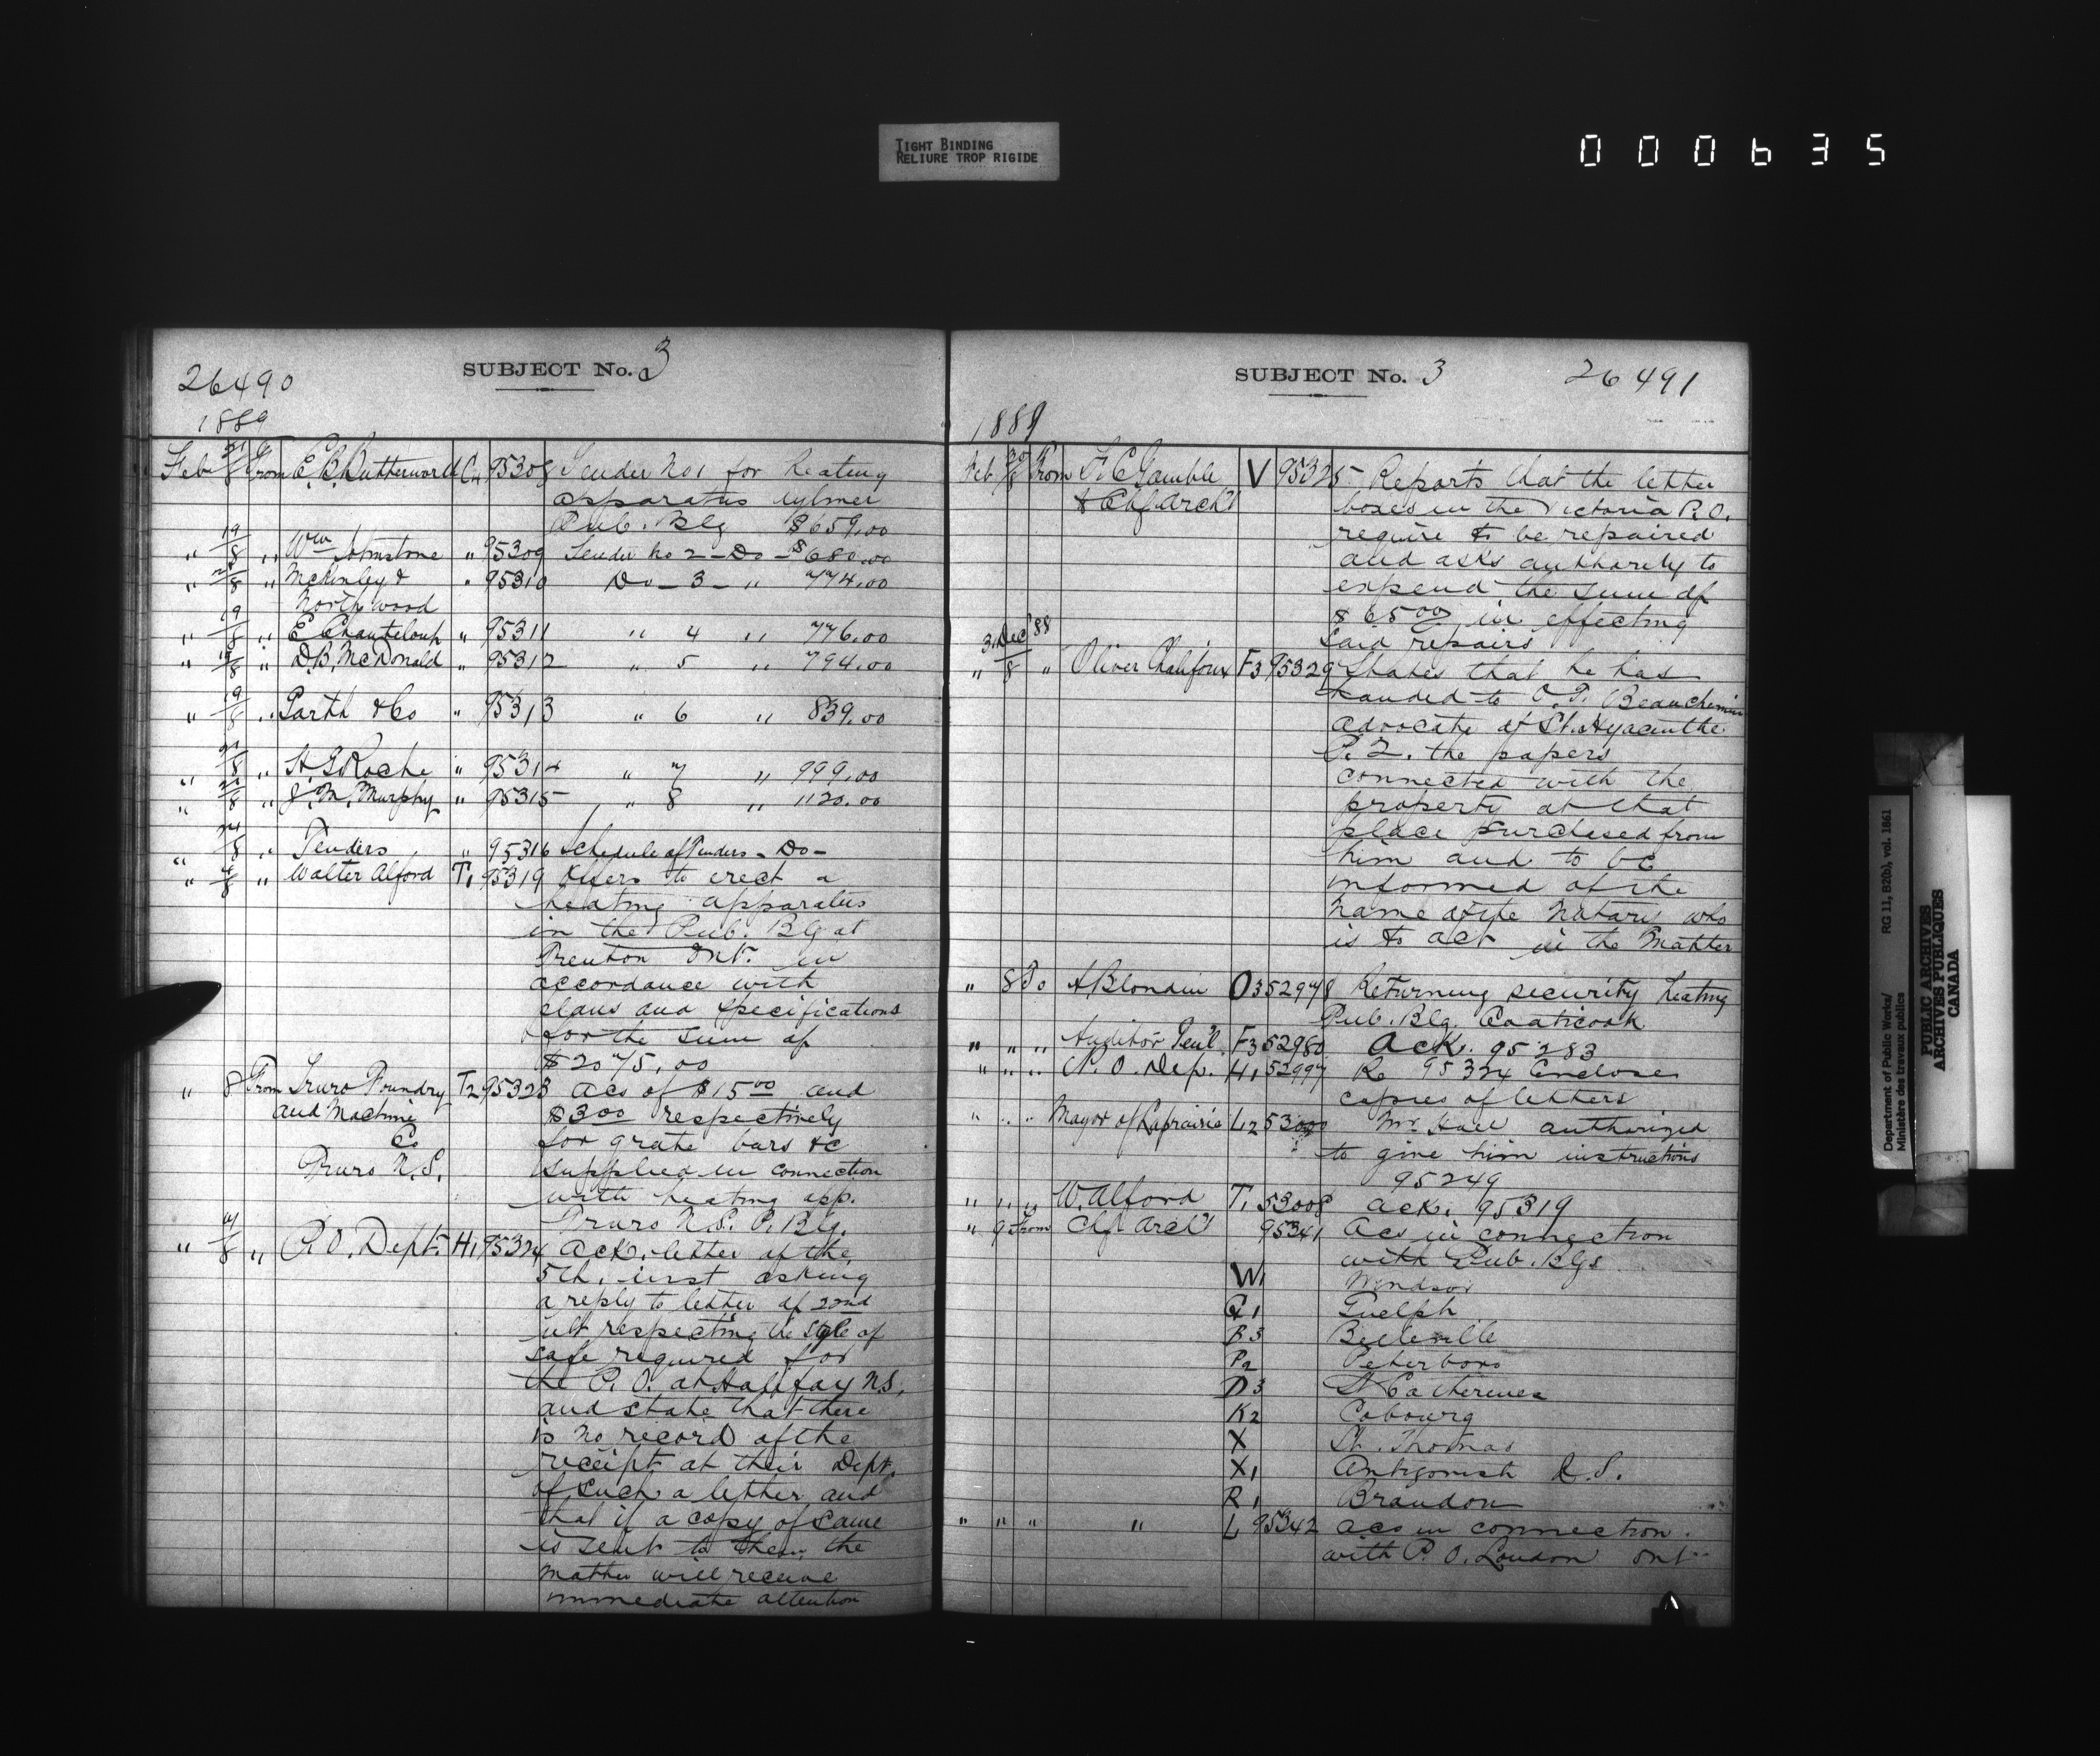 TIGHT BINDING
RELIURE TROP RIGIDE
000635
26490
SUBJECT No. 3
1889
Feb 21/8 From E. C. Butterworth C4 95308 Tender No 1 for heating
apparatus Aylmer
Pub. Blg $659.00
" 19/8 " Wm Johnstone " 95309 Tender No 2 - Do - $680.00
" /8 " McKinley & " 95310 Do - 3 - " 774.00
Northwood
" 19/8 " E Chanteloup " 95311 " 4 " 776.00
" /8 " D.B. McDonald " 95312 " 5 " 794.00
" 19/8 " Garth & Co " 95313 " 6 " 839.00
" /8 " H. G Roche " 95314 " 7 " 999.00
" /8 " J. M. Murphy " 95315 " 8 " 1120.00
" /8 " Tenders " 95316 Schedule of Tenders - Do -
" /8 " Walter Alford T1 95319 Offers to erect a
heating apparatus
in the Pub. Blg at
Trenton Ont. in
accordance with
plans and specifications
for the sum of
$2075.00
" 8 From Truro Foundry T2 95323 Acs of $15 00 and
and Machine $3 00 respectively
Co for grate bars &c
Truro N.S. supplied in connection
with heating app.
Truro N.S. P. Blg.
" /8 " P.O. Dept. H1 95324 Ack. letter of the
5th. inst asking
a reply to letter of 22nd
ult respecting the style of
safe required for
the P.O. at Halifax N.S.
and state that there
is no record of the
receipt at their Dept.
of such a letter and
that if a copy of same
is sent to them the
matter will receive
immediate attention
SUBJECT No. 3 26491
1889
Feb 30/8 From F. C Gamble V 95325 Reports that the letter
& Chf Arch't boxes in the Victoria P.O.
require to be repaired
and asks authority to
expend the sum of
$65 00 in effecting
said repairs
3. Dec '88
" 8 " Oliver Chalifoux F3 95329 States that he has
handed to O. T. Beauchemin
advocate of St. Hyacinthe
P.Q. the papers
connected with the
property at that
place purchased from
him and to be
informed of the
name of the Notary who
is to act in the matter
" 8 To A Blondin O3 52978 Returning security heating
Pub. Blg. Coaticook
" " " Auditor Gen'l. F3 52980 Ack. 95283
" " " P. O. Dep. H1 52997 Re 95324 Encloses
copies of letters
" " " Mayor of Laprairie L2 53000 Mr. Hall authorized
to give him instructions
95249
" " " W. Alford T1 53008 Ack. 95319
" 9 From Chf Arch't 95341 Acs in connection
with Pub. Blgs
W1 Windsor
G1 Guelph
B3 Belleville
P2 Peterboro
D3 St Catherines
K2 Cobourg
X St. Thomas
X1 Antigonish N.S.
R1 Brandon
" " " " L 95342 Acs in connection
with P. O. London Ont
Department of Public Works/ RG 11, B2(b), vol. 1861
Ministère des travaux publics
PUBLIC ARCHIVES
ARCHIVES PUBLIQUES
CANADA